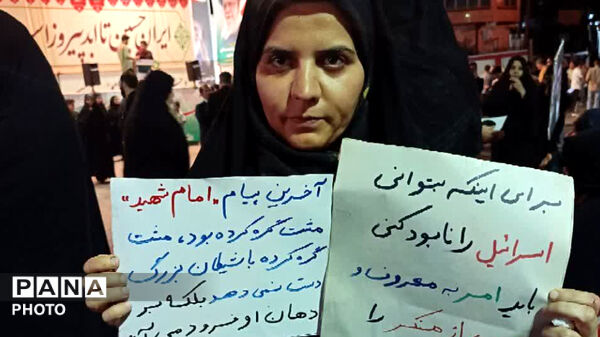 ایران حسینی تا ابد پیروز است
برای اینکه بتوانی
اسرائیل را نابود کنی
باید امر به معروف و
از منکر را
آخرین پیام «امام شهید»
مشت گره کرده بود، مشت
گره کرده با شیطان بزرگ
دست نمی دهد بلکه بر
دهان او فرود می آید
PANA
PHOTO